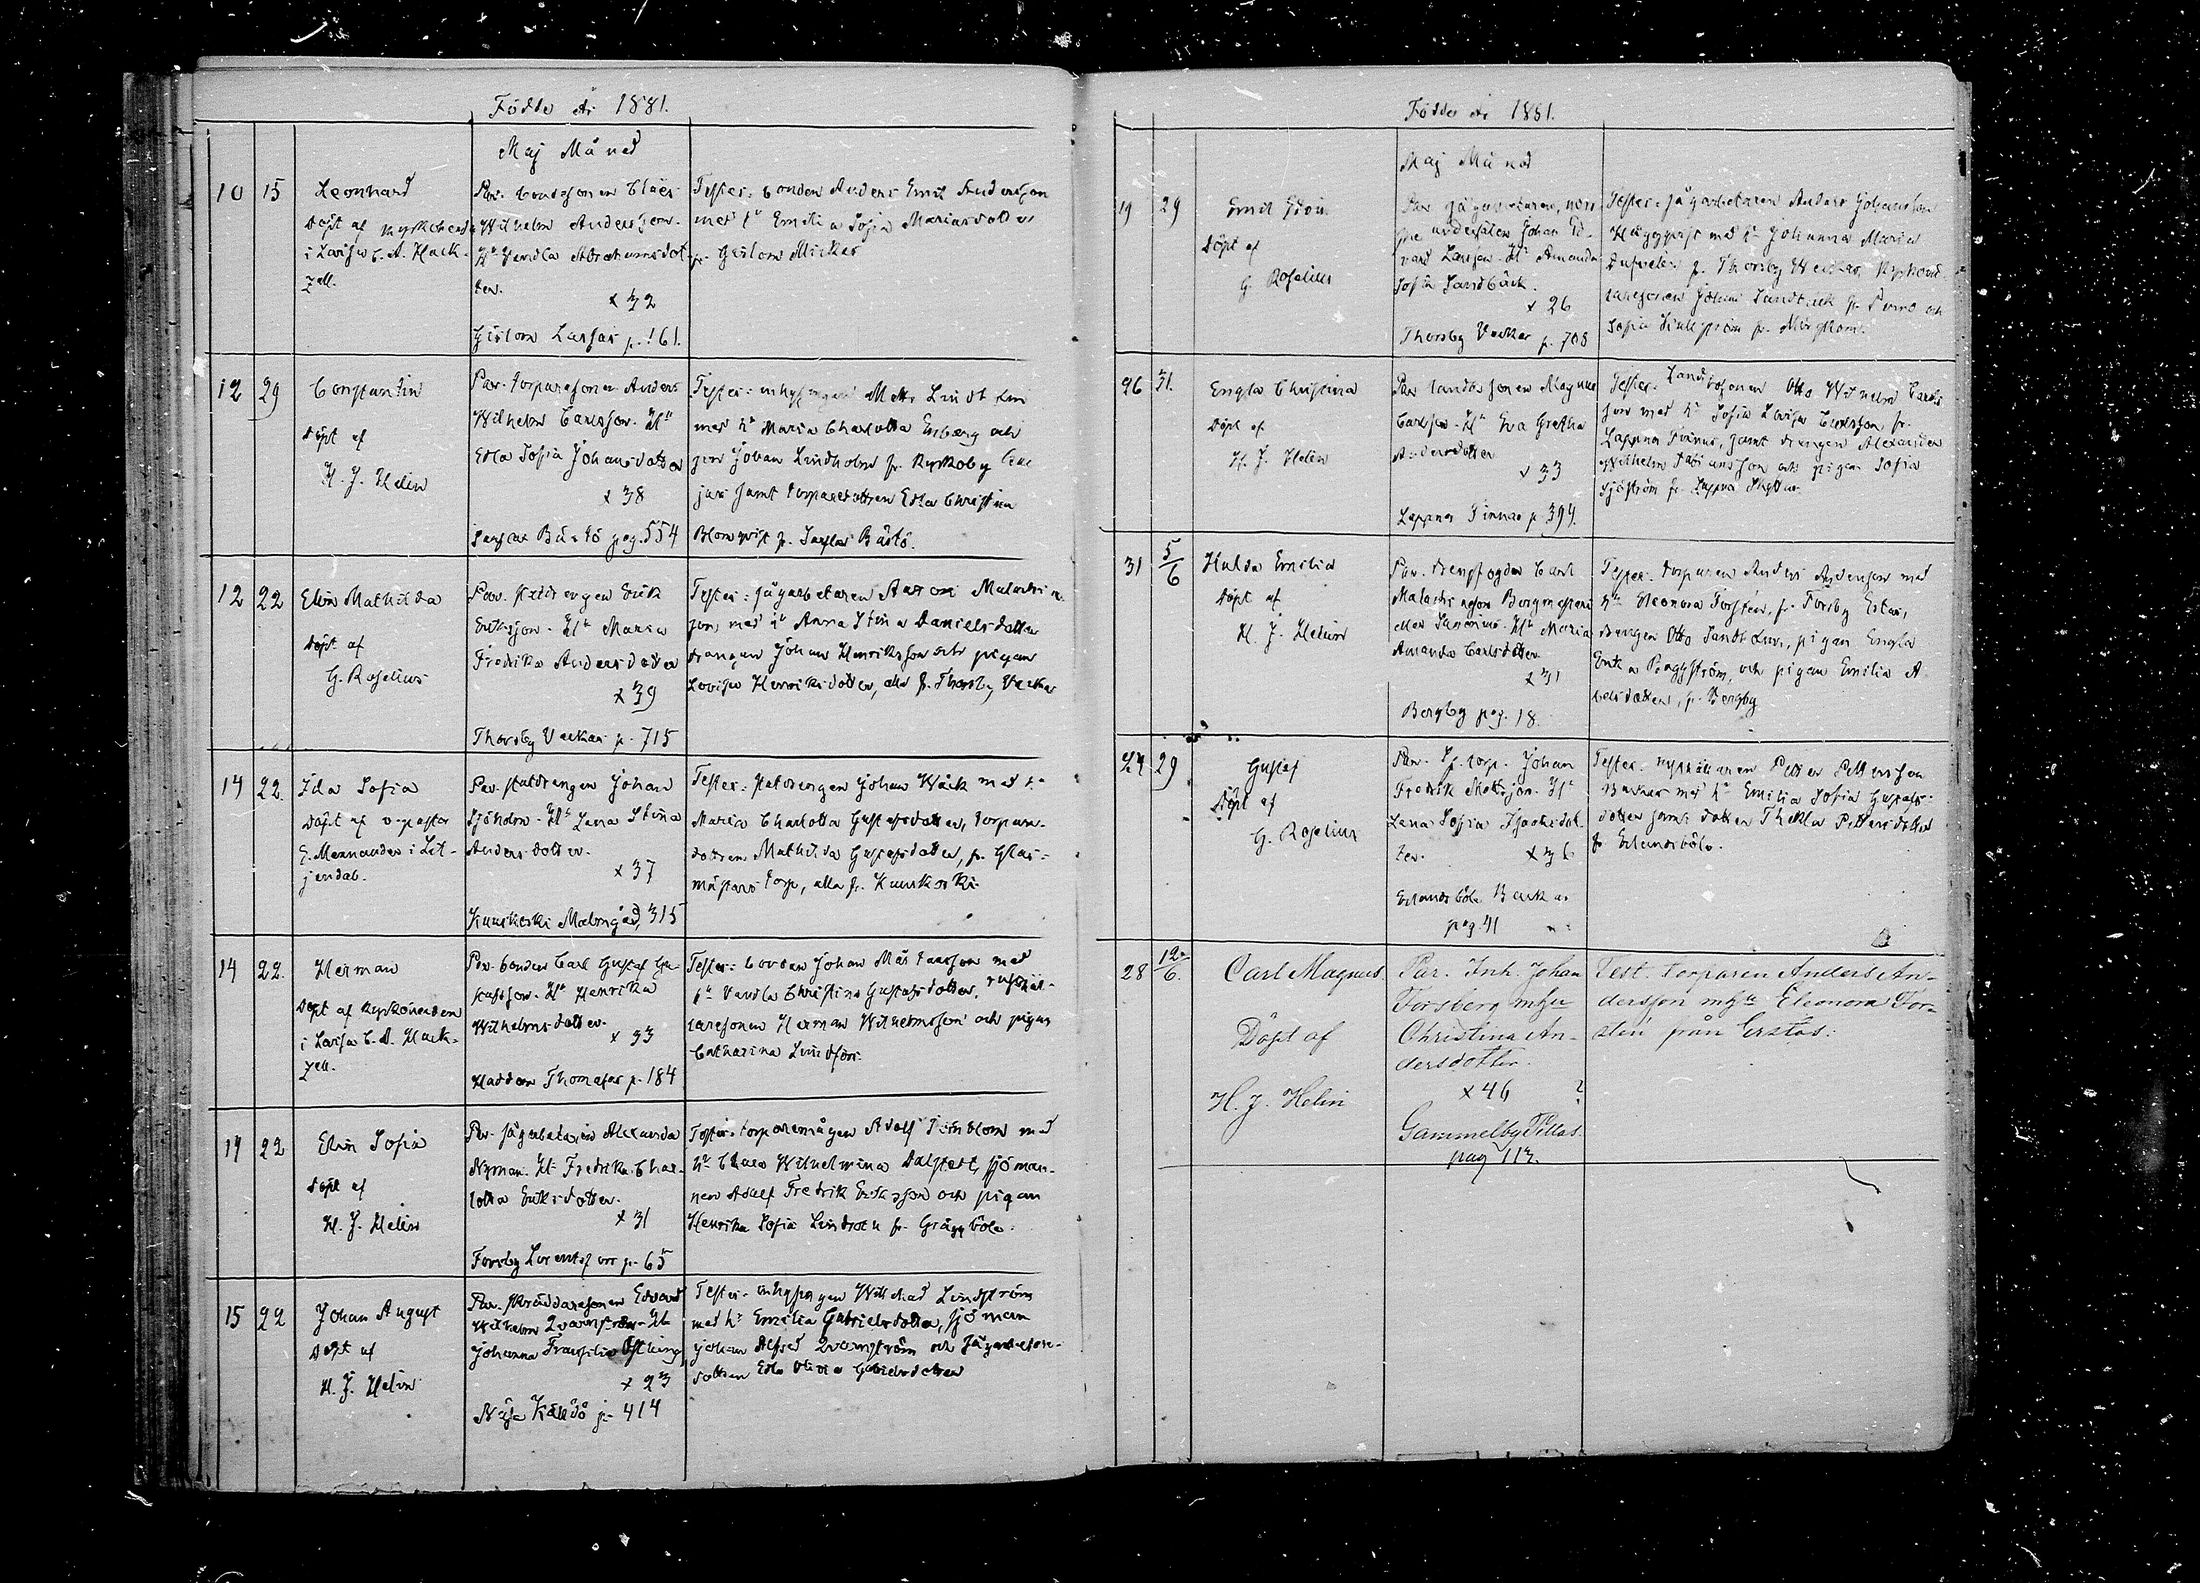 Födde År 1881.
Maj Månad
10 15 Leonhard
Döpt af kyrkoherden
i Lovisa C. A. Hack-
zell.
Par. bondesonen Claës
Wilhelm Andersson.
Hu Vendla Abrahamsdot-
ter.
x 32
Gislom Larsas p. 161.
Tester: bonden Anders Emil Andersson
med hu Emilia Sofia Mariasdotter
fr. Gislom Mickas
12 29 Constantin
döpt af
H. J. Helin
Par. torparesonen Anders
Wilhelm Carlsson. Hu
Edla Sofia Johansdotter
x 38
Sarflax Båstö pag. 554
Tester: inhysingen Matts
med hu Maria Charlotta Enberg och
Johan Lindholm fr. Kyrkoby
jemt torparedottren Edla Christina
Blomqvist fr. Sarflax Båstö.
12 22 Elin Mathilda
döpt af
G. Roselius
Par. statdrengen Erik
Eriksson. Hu Maria
Fredrika Andersdotter
x 39
Thorsby Veckas p. 715
Tester: sågarbetaren Aaron
son, med hu Anna Stina Danielsdotter
drängen Johan Henriksson och pigan
Lovisa Henriksdotter, alla fr. Thorsby Veckas
14 22. Ida Sofia
Döpt af v. pastor
E. Mennander i Lil-
jendal.
Par. statdrengen Johan
Sjöholm. Hu Lena Stina
Andersdotter.
x 37
Kuuskoski Malmgård, 315
Tester: statdrengen Johan Wäck med hu
Maria Charlotta Gustafsdotter, torpare-
dottren Mathilda Gustafsdotter, fr. Glas-
mästars torp, alla fr. Kuuskoski.
14 22. Herman
Döpt af kyrkoherden
i Lovisa C. A. Hack-
zell.
Par. bonden Carl Gustaf Gu-
stafsson. Hu Henrika
Wilhelmsdotter.
x 33
Haddom Thomasas p. 184
Tester: bonden Johan Mårtensson med
hu Vendla Christina Gustafsdotter,
laresonen Herman Wilhelmsson och pigan
Catharina Lindfors.
14 22 Elin Sofia
döpt af
H. J. Helin
Par. sågarbetaren Alexander
Nyman. Hu Fredrika Char-
lotta Eriksdotter.
x 31
Forsby p. 65
Tester: torparemågen Adolf med
hu Clara Wilhelmina Dalstedt, sjöman-
nen Adolf Fredrik Eriksson och pigan
Henrika Sofia Lindroth fr. Gräggböle.
15 22 Johan August
döpt af
H. J. Helin
Par. skräddaresonen Edvard
Wilhelm Qvarnström. Hu
Johanna Fransilia Östling
x 23
Näse Kalldö p. 414
Tester: inhysingen Wilhad Lindström
med hu Emilia Gabrielsdotter, sjöman
Johan Alfred Qvarnström och sågarbetare-
dottren Edla Olivia Gabrielsdotter
Födde År 1881.
Maj Månad
19 29 Emil Edvin
döpt af
G. Roselius
Par. sågarbetaren, nors-
ske undersåten Johan Ed-
vard Larsson. Hu Amanda
Sofia Sandbäck.
x 26
Thorsby Veckas p. 708
Tester: sågarbetaren Anders Johansson
Häggqvist med hu Johanna Maria
fr. Thorsby Veckas,
Johan Sandbäck fr. och
Sofia fr.
26 31. Engla Christina
döpt af
H. J. Helin
Par. landbosonen Magnus
Carlsson. Hu Eva Gretha
Andersdotter
x 33
Lappnor Finnas p. 394.
Tester: Landbosonen Otto Wilhelm Carls-
son med hu Sofia Lovisa Carlsson fr.
Lappnor Finnas, jemt drengen Alexander
Wilhelm och pigan Sofia
Sjöström fr. Lappnor
31 5/6 Hulda Emilia
döpt af
H. J. Helin
Par. drengfogden Carl
Malachiasson Borgmestari
eller Hu Maria
Amanda Carlsdotter
x 31
Bergby pag. 18.
Tester: torparen Anders Andersson med
hu Eleonora Forstén, fr. Forsby Erstas,
drengen Otto, pigan Engla
och pigan Emilia A-
belsdotter, fr. Bergby
24 29 Gustaf
Döpt af
G. Roselius
Par. torp. Johan
Fredrik Mattsson. Hu
Lena Sofia Isacksdot-
ter. x 36
Erlandsböle Backas
pag. 41
Tester: Petter Pettersson
Backas med hu Emilia Sofia Gustafs-
dotter jemt dotter Thekla Pettersdotter
fr. Erlandsböle.
28 12/6. Carl Magnus
Döpt af
H. J. Helin
Par. Inh. Johan
Forsberg m hu
Christina An-
dersdotter.
x 46 ?
Gammelby Pillas.
pag 113.
Test. torparen Anders An-
dersson m hu Eleonora For-
stén från Erstas.